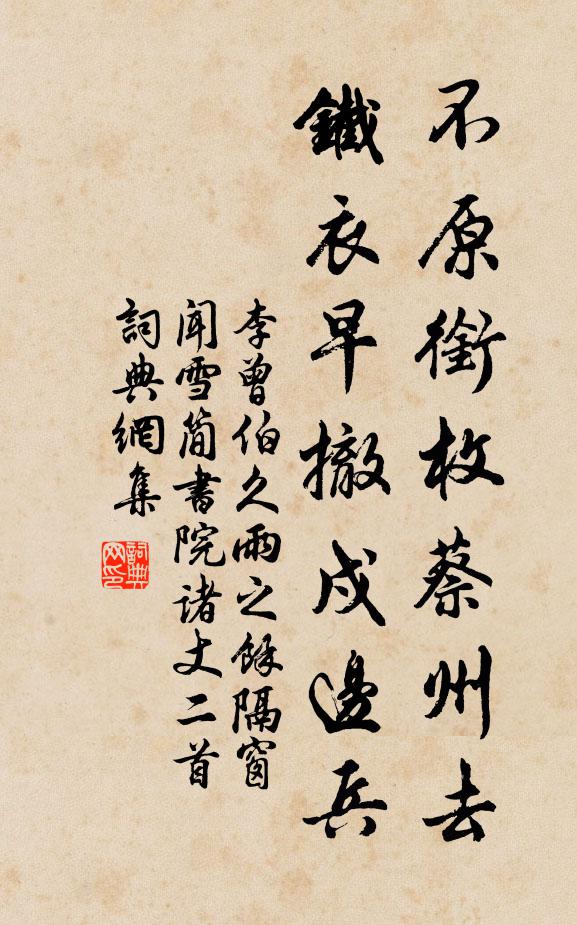 不原銜枚蔡州去
鐵衣早撤戍邊兵
李曾伯久雨之餘隔窗
闻雪简書院诸丈二首
詞典網集
詞典網印